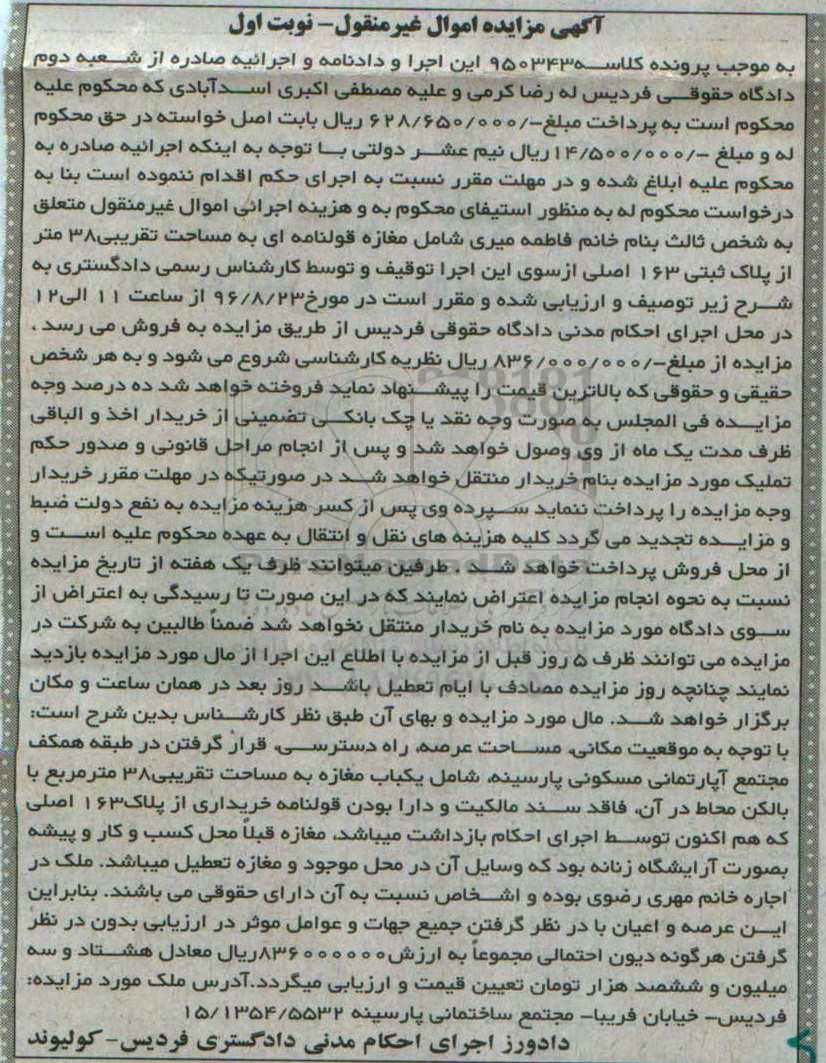 آگهی مزایده اموال غیرمنقول- نوبت اول
به موجب پرونده کلاسه۹۵۰۳۴۳ این اجرا و دادنامه و اجرائیه صادره از شعبه دوم
دادگاه حقوقی فردیس له رضا کرمی و علیه مصطفی اکبری اسدآبادی که محکوم علیه
محکوم است به پرداخت مبلغ-/۶۲۸/۶۵۰/۰۰۰ ریال بابت اصل خواسته در حق محکوم
له و مبلغ -/۱۴/۵۰۰/۰۰۰ریال نیم عشر دولتی با توجه به اینکه اجرائیه صادره به
محکوم علیه ابلاغ شده و در مهلت مقرر نسبت به اجرای حکم اقدام ننموده است بنا به
درخواست محکوم له به منظور استیفای محکوم به و هزینه اجرائی اموال غیرمنقول متعلق
به شخص ثالث بنام خانم فاطمه میری شامل مغازه قولنامه ای به مساحت تقریبی۳۸ متر
از پلاک ثبتی ۱۶۳ اصلی ازسوی این اجرا توقیف و توسط کارشناس رسمی دادگستری به
شرح زیر توصیف و ارزیابی شده و مقرر است در مورخ۹۶/۸/۲۳ از ساعت ۱۱ الی۱۲
در محل اجرای احکام مدنی دادگاه حقوقی فردیس از طریق مزایده به فروش می رسد .
مزایده از مبلغ-/۸۳۶/۰۰۰/۰۰۰ ریال نظریه کارشناسی شروع می شود و به هر شخص
حقیقی و حقوقی که بالاترین قیمت را پیشنهاد نماید فروخته خواهد شد ده درصد وجه
مزایده فی المجلس به صورت وجه نقد یا چک بانکی تضمینی از خریدار اخذ و الباقی
ظرف مدت یک ماه از وی وصول خواهد شد و پس از انجام مراحل قانونی و صدور حکم
تملیک مورد مزایده بنام خریدار منتقل خواهد شد در صورتیکه در مهلت مقرر خریدار
وجه مزایده را پرداخت ننماید سپرده وی پس از کسر هزینه مزایده به نفع دولت ضبط
و مزایده تجدید می گردد کلیه هزینه های نقل و انتقال به عهده محکوم علیه است و
از محل فروش پرداخت خواهد شد . طرفین میتوانند ظرف یک هفته از تاریخ مزایده
نسبت به نحوه انجام مزایده اعتراض نمایند که در این صورت تا رسیدگی به اعتراض از
سوی دادگاه مورد مزایده به نام خریدار منتقل نخواهد شد ضمناً طالبین به شرکت در
مزایده می توانند ظرف ۵ روز قبل از مزایده با اطلاع این اجرا از مال مورد مزایده بازدید
نمایند چنانچه روز مزایده مصادف با ایام تعطیل باشد روز بعد در همان ساعت و مکان
برگزار خواهد شد. مال مورد مزایده و بهای آن طبق نظر کارشناس بدین شرح است:
با توجه به موقعیت مکانی، مساحت عرصه، راه دسترسی، قرار گرفتن در طبقه همکف
مجتمع آپارتمانی مسکونی پارسینه، شامل یکباب مغازه به مساحت تقریبی۳۸ مترمربع با
بالکن محاط در آن، فاقد سند مالکیت و دارا بودن قولنامه خریداری از پلاک۱۶۳ اصلی
که هم اکنون توسط اجرای احکام بازداشت میباشد، مغازه قبلاً محل کسب و کار و پیشه
بصورت آرایشگاه زنانه بود که وسایل آن در محل موجود و مغازه تعطیل میباشد. ملک در
اجاره خانم مهری رضوی بوده و اشخاص نسبت به آن دارای حقوقی می باشند. بنابراین
این عرصه و اعیان با در نظر گرفتن جمیع جهات و عوامل موثر در ارزیابی بدون در نظر
گرفتن هرگونه دیون احتمالی مجموعاً به ارزش۸۳۶۰۰۰۰۰۰ریال معادل هشتاد و سه
میلیون و ششصد هزار تومان تعیین قیمت و ارزیابی میگردد.آدرس ملک مورد مزایده:
فردیس- خیابان فریبا- مجتمع ساختمانی پارسینه ۱۵/۱۳۵۴/۵۵۳۲
دادورز اجرای احکام مدنی دادگستری فردیس- کولیوند